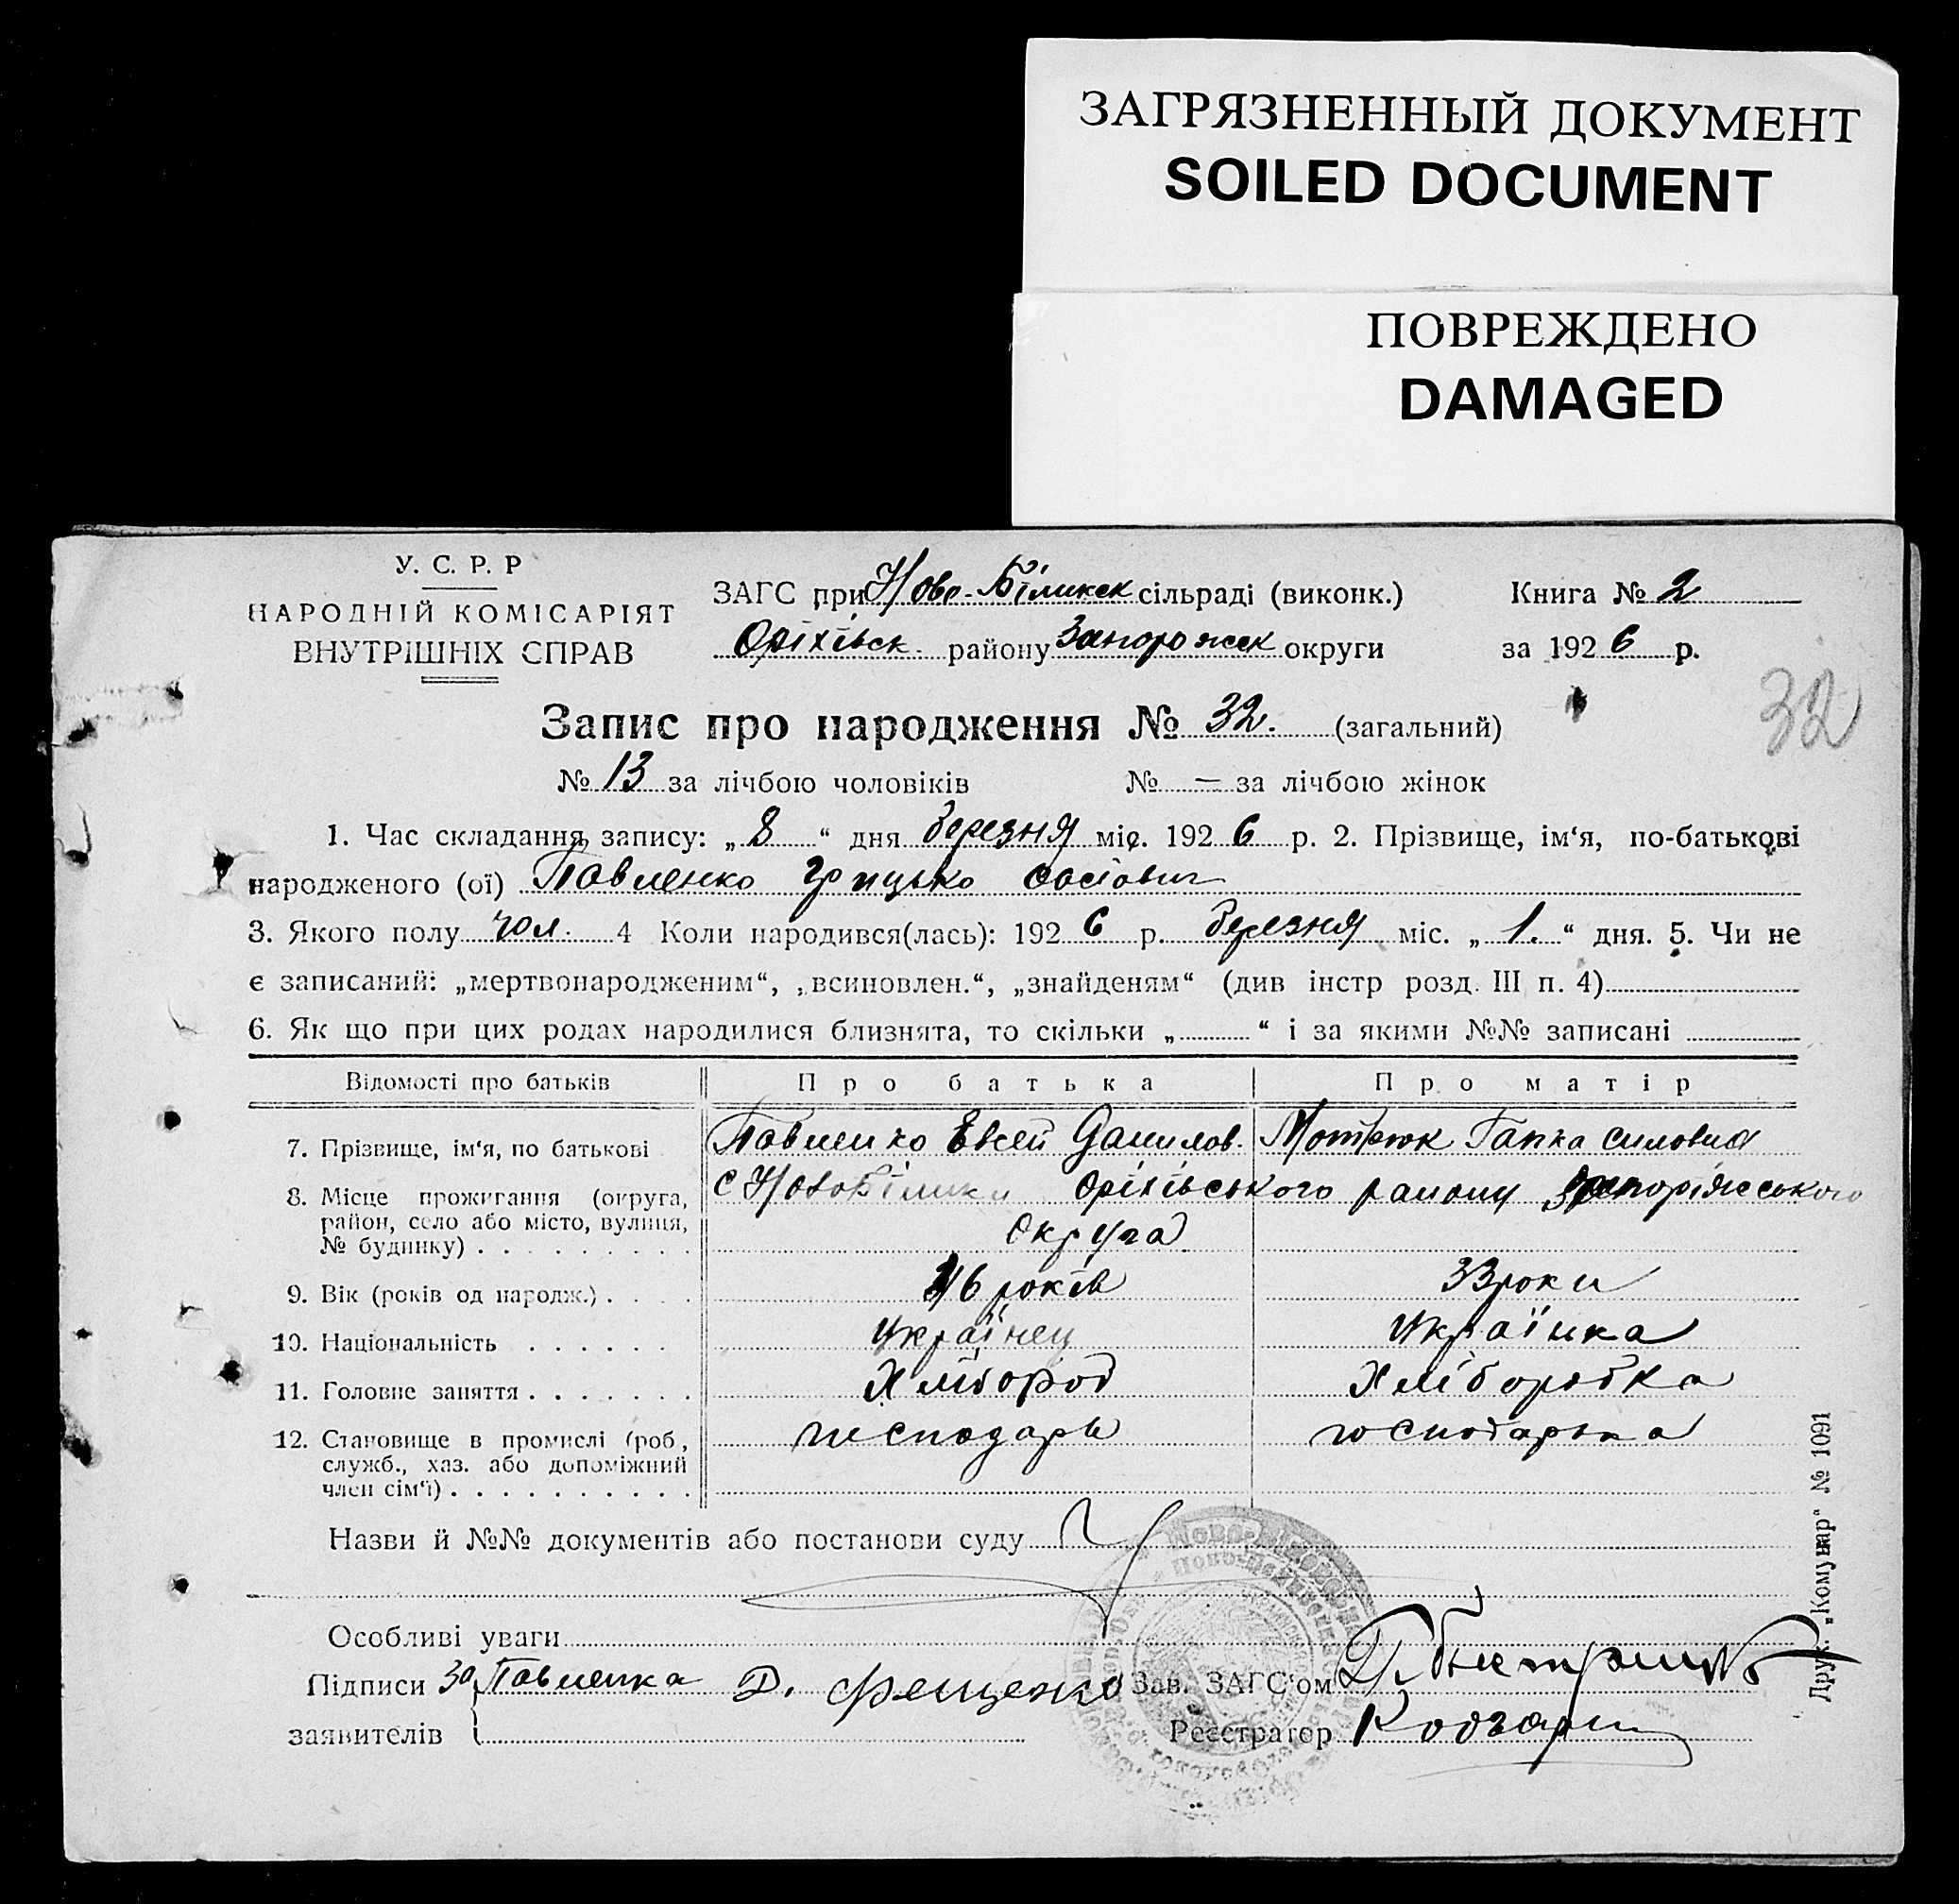 ЗАГРЯЗНЕННЫЙ ДОКУМЕНТ
SOILED DOCUMENT
ПОВРЕЖДЕНО
DAMAGED
У. С. Р. Р
НАРОДНІЙ КОМІСАРІЯТ
ВНУТРІШНІХ СПРАВ
ЗАГС при Ново-Біликск сільраді (виконк.)
Оріхівск. району Запорожск округи
Книга № 2
за 1926 р.
32
Запис про народження № 32. (загальний)
№ 13 за лічбою чоловіків № — за лічбою жінок
1. Час складання запису: „8“ дня березня міс. 1926 р. 2. Прізвище, ім‘я, по-батькові
народженого (ої) Павленко Грицько
3. Якого полу чол. 4 Коли народився(лась): 1926 р. березня міс. „1.“ дня. 5. Чи не
є записаний: „мертвонародженим“, „всиновлен.“, „знайденям“ (див інстр розд. III п. 4)
6. Як що при цих родах народилися близнята, то скільки „ “ і за якими №№ записані
Відомості про батьків Про батька Про матір
7. Прізвище, ім‘я, по батькові Павленко Евсей Данилов. Мотрюк Гапка Силовна
8. Місце прожигання (округа, район, село або місто, вулиця, № будинку) с НовоБілики Оріхівського району Запоріжського
Округа
9. Вік (років од народж.) 46 років 33 роки
10. Національність Українец Українка
11. Головне заняття Хлібороб Хліборобка
12. Становище в промислі (роб, служб., хаз. або допоміжний член сім‘ї) господарь господарька
Назви й №№ документів або постанови суду
Особливі уваги
Підписи За Павленка Д. Фещенко Зав. ЗАГС‘ом
заявителів Реєстратор
Друк. „Комунар“ № 1091